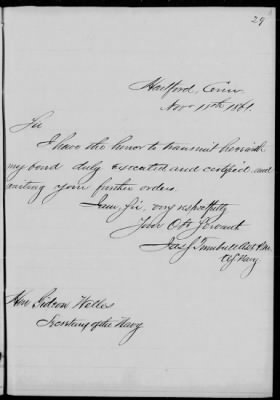 29
Hartford, Conn
Nov 18th 1861.
Sir
I have the honor to transmit herewith
my bond duly executed and certified, and
waiting your further orders.
I am, Sir, very respectfully
Your Obt Servant
Jas J Turnbull Asst P M
U.S. Navy
Hon Gideon Welles
Secretary of the Navy